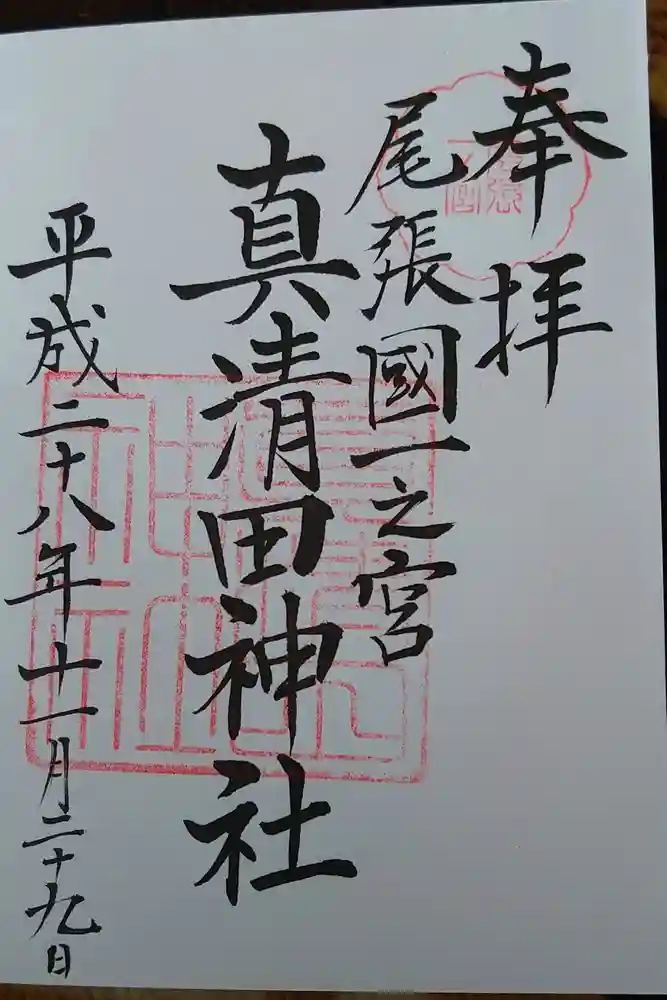 奉拝
尾張國一之宮
真清田神社
平成二十八年十一月二十九日